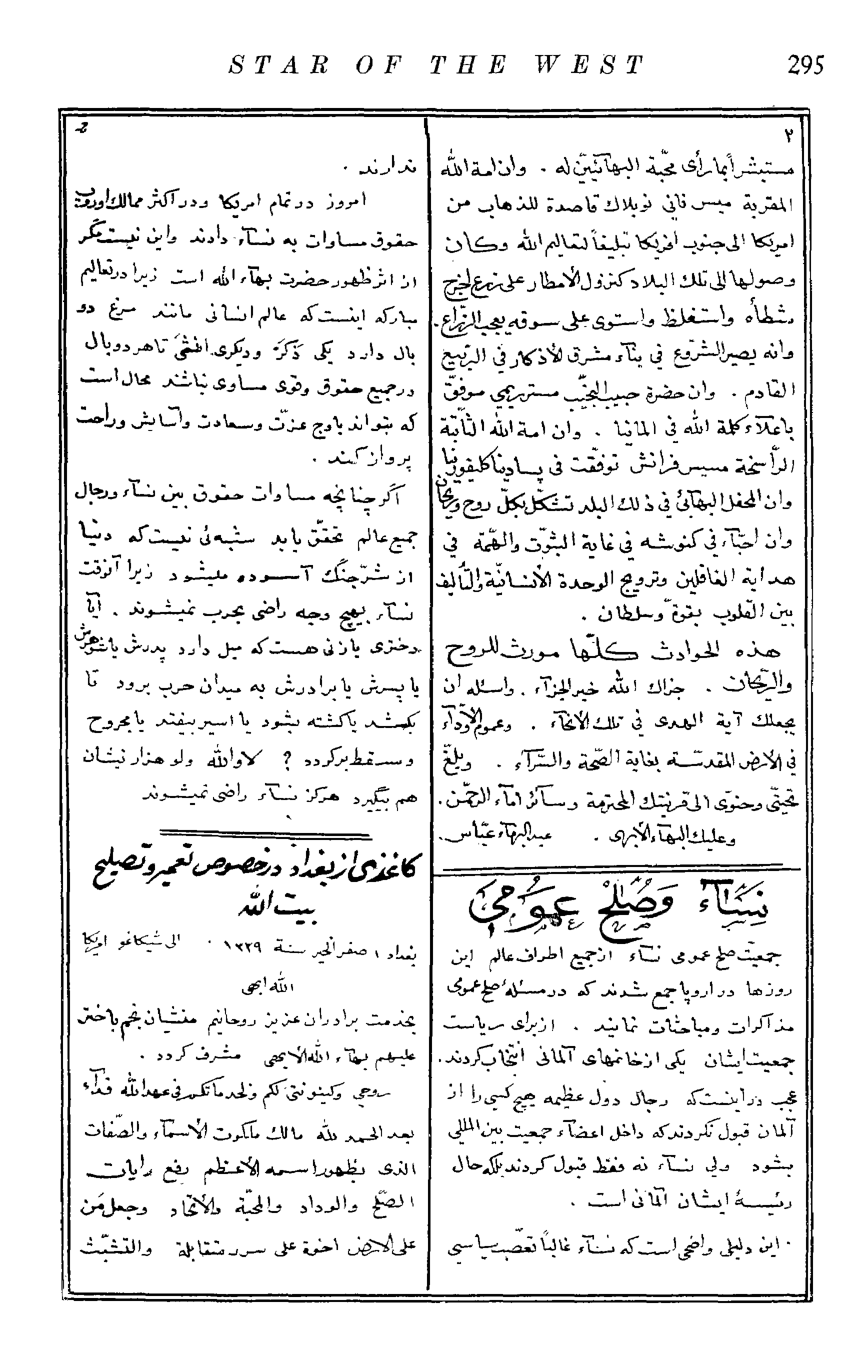 STAR OF THE WEST 295
٢
مستبشراً بما رأى محبّة البهائيّين له . وان امة الله
المقربة ميس فاني نوبلاك قاصدة للذهاب من
امريكا الى جنوب افريكا تبليغاً لتعاليم الله وكان
وصولها الى تلك البلاد كنزول الأمطار على زرع اخرج
شطأه واستغلظ واستوى على سوقه يعجب الزراع.
وانه يصير الشروع في بناء مشرق الأذكار في الربيع
القادم . وان حضرة حبيب مستر ريمي موفق
باعلاء كلمة الله في المانيا . وان امة الله الثابتة
الرّاسخة ميسيس فرانش توفقت في پسادينا كليفورنيا
وان المحفل البهائي في ذلك البلد تشكّل بكلّ روح وريحان
وان احبّاء في كنوشه في غاية الثبوت والهمّة في
هداية الغافلين وترويج الوحدة الأنسانيّة والتأليف
بين القلوب بقوة وسلطان .
هذه الحوادث كلّها مورث للروح
والرّيحان . جزاك الله خير الجزاء . واسئله ان
يجعلك آية الهدى في تلك الأنحاء . وعموم الأودّاء
في الأرض المقدّسة بغاية الصّحة والسّرّاء . وبلّغ
تحيّتي وحنوّي الى قرينتك المحترمة وسائر اماء الرحمن.
وعليك البهاء الأبهى . عبدالبهاء عبّاس.
نِسَاء وَصُلْح عمومي
جمعيّت صلح عمومى نساء ازجميع اطراف عالم اين
روزها در اروپا جمع شدند كه در مسئله صلح عمومى
مذاكرات ومباحثات نمايند . ازبراى رياست
جمعيت ايشان يكى ازخانمهاى آلمانى انتخاب كردند.
عجب در اينست كه رجال دول عظيمه هيچ كسى را از
آلمان قبول نكردند كه داخل اعضاء جمعيت بين المللى
بشود ولى نساء نه فقط قبول كردند بلكه حال
رئيسهٔ ايشان آلمانى است .
اين دليلى واضحى است كه نساء غالباً تعصّب سياسى
٢
ندارند .
امروز درتمام امريكا ودر اكثر ممالك اوروپ
حقوق مساوات به نساء دادند واين نيست مگر
از اثر ظهور حضرت بهاء الله است زيرا درتعاليم
مباركه اينست كه عالم انسانى مانند مرغ دو
بال دارد يكى ذَكَر وديگرى اُنثى تا هر دوبال
درجميع حقوق وقوى مساوى نباشند محال است
كه بتواند باوج عزّت وسعادت وآسايش وراحت
پرواز كند .
اگر چنانچه مساوات حقوق بين نساء ورجال
جميع عالم تحقّق يابد شبهه‌ئى نيست كه دنيا
از شرّ جنگ آسوده ميشود زيرا آنوقت
نساء بهيچ وجه راضى بحرب نميشوند . آيا
دخترى يا زنى هست كه ميل دارد پدرش يا شوهرش
يا پسرش يا برادرش به ميدان حرب برود تا
بكشد يا كشته بشود يا اسير بيفتد يا مجروح
وسقط برگردد ؟ لا والله ولو هزار نيشان
هم بگيرد هرگز نساء راضى نميشوند
كاغذى از بغداد درخصوص تعمير وتصليح
بيت الله
بغداد ١ صفر الخير سنة ١٣٣٩ . الى شيكاغو امريكا
الله ابهى
بخدمت برادران عزيز روحانيم منشيان نجم باختر
عليهم بهاء الله الأبهى مشرف گردد .
روحي وكينونتي لكم ولخدماتكم في عهدالله فداء
بعد الحمد لله مالك ملكوت الأسماء والصّفات
الذى بظهور اسمه الأعظم رفع رايات
الصّلح والوداد والمحبّة والأتحاد وجعل مَن
على الارض اخوة على سرر متقابلة والتشبّث